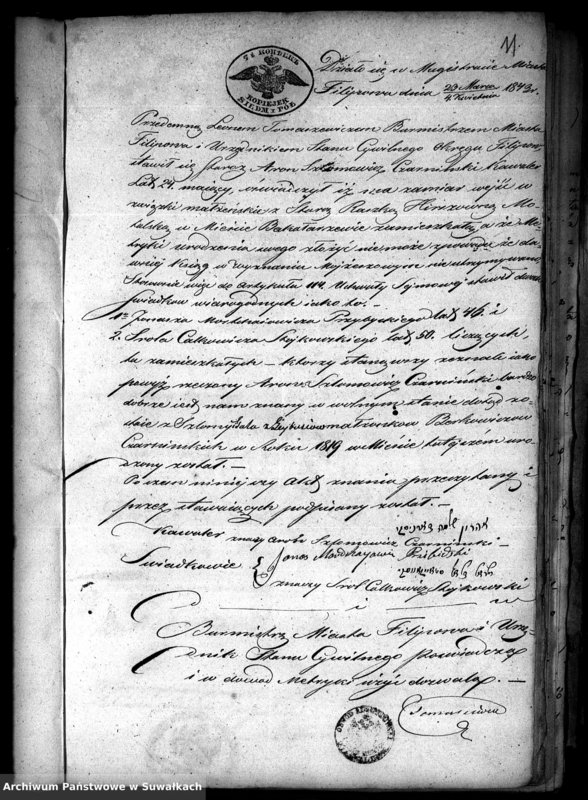 11
7½ KOPIEJEK
KOPIEJEK SIEDM Y PÓŁ
Działo się w Magistracie Miasta
Filipowa dnia 23 Marca / 4 Kwietnia 1843 r.
Przedemną Leonem Tomaszewiczem Burmistrzem Miasta
Filipowa i Urzędnikiem Stanu Cywilnego Okręgu Filipow.
stawił się Staroz. Aron Szlomowicz Czarniński Kawaler
Lat 24 mający, oświadczył iż ma zamiar wejść w
związki małżeńskie z Staroz. Raszką Hirszówną
w Mieście Bakałarzewie zamieszkałą, a że Me-
tryki urodzenia swego złożyć nie może z powodu że da-
wniej Ksiąg w Wyznaniu Mojżeszowym nie utrzymywano
Stosownie więc do Artykułu 114 Uchwały Sejmowej stawił dwóch
świadków wiarogodnych jako to:
1. Jonasza Mordchaiowicza Przybyskiego lat 46. i
2. Srola Całkowicza Stójkowskiego lat 50. liczących,
tu zamieszkałych – którzy stanąwszy zeznali iako
powyż rzeczony Aron Szlomowicz Czarniński bardzo
dobrze jest nam znany w wolnym stanie dotąd
z Szlomy małżonków Berkowiczów
Czarnińskich w Roku 1819 w Mieście tutejszem uro-
dzony został. –
Poczem niniejszy Akt znania przeczytany i
przez stawaiących podpisany został. –
אהרן שלמה
Kawaler znaczy Aron Szlomowicz Czarniński
Świadkowie { Jonas Mordchajowicz Pribiski
znaczy Srol Całkowicz Stójkowski
Burmistrz Miasta Filipowa i Urzę-
dnik Stanu Cywilnego poświadcza
i w dowód Metryki użyć dozwala. –
Tomaszewicz
Archiwum Państwowe w Suwałkach